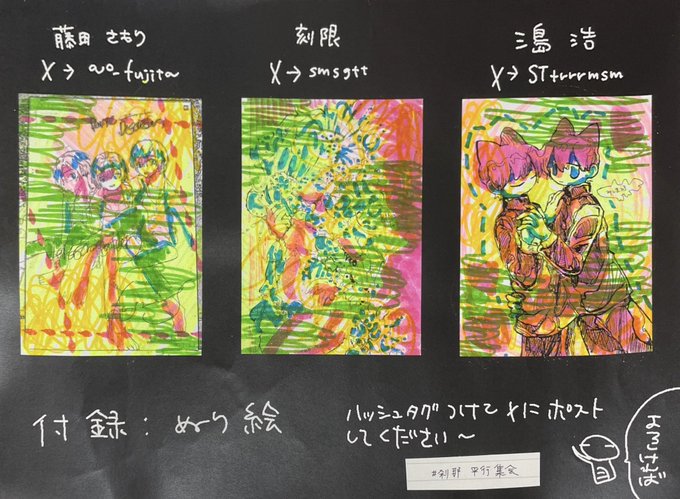 藤田 さもり
X→ ao_fujita
刻限
X→ smsgtt
三島 浩
X→ STtrrrmsm
付録：ぬり絵
ハッシュタグつけてXにポスト
してください〜
よろければ
#刹那平行集会